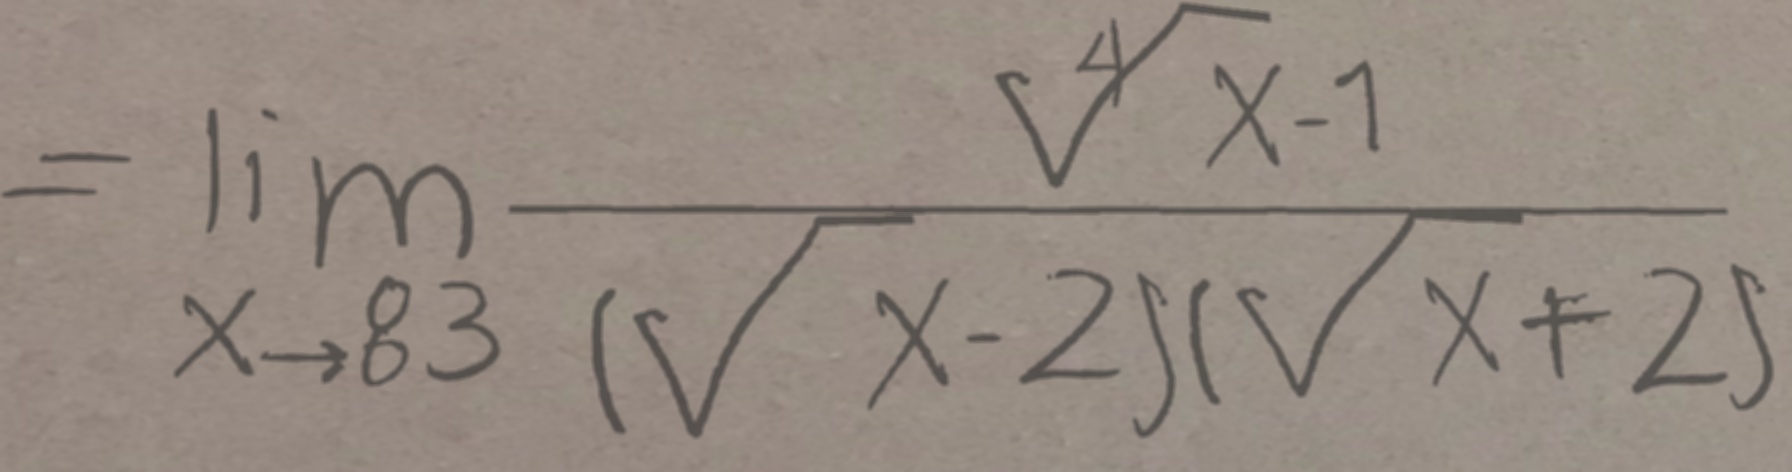 = lim_{x→83} \frac{\sqrt[4]{x}-1}{(\sqrt{x}-2)(\sqrt{x}+2)}